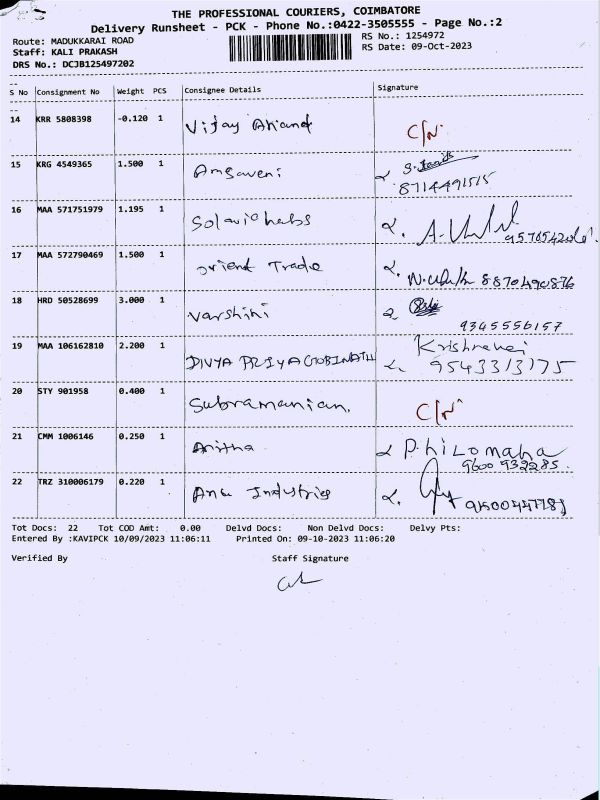 THE PROFESSIONAL COURIERS, COIMBATORE
Delivery Runsheet - PCK - Phone No.:0422-3505555 - Page No.:2
Route: MADUKKARAI ROAD RS No.: 1254972
Staff: KALI PRAKASH RS Date: 09-Oct-2023
DRS No.: DCJB125497202
S No Consignment No Weight PCS Consignee Details Signature
14 KRR 5808398 -0.120 1 Vijay Anand C/N
15 KRG 4549365 1.500 1 Amsaveni
8714491515
16 MAA 571751979 1.195 1
17 MAA 572790469 1.500 1 orient Trade 8870490876
18 HRD 50528699 3.000 1 Varshini
9345556157
19 MAA 106162810 2.200 1 DIVYA PRIYA GOBINATH
9543313175
20 STY 901958 0.400 1 Subramanian. C/N
21 CMM 1006146 0.250 1 Anitha P. hiLomaha
9600 932285.
22 TRZ 310006179 0.220 1 Industries
Tot Docs: 22 Tot COD Amt: 0.00 Delvd Docs: Non Delvd Docs: Delvy Pts:
Entered By :KAVIPCK 10/09/2023 11:06:11 Printed On: 09-10-2023 11:06:20
Verified By Staff Signature